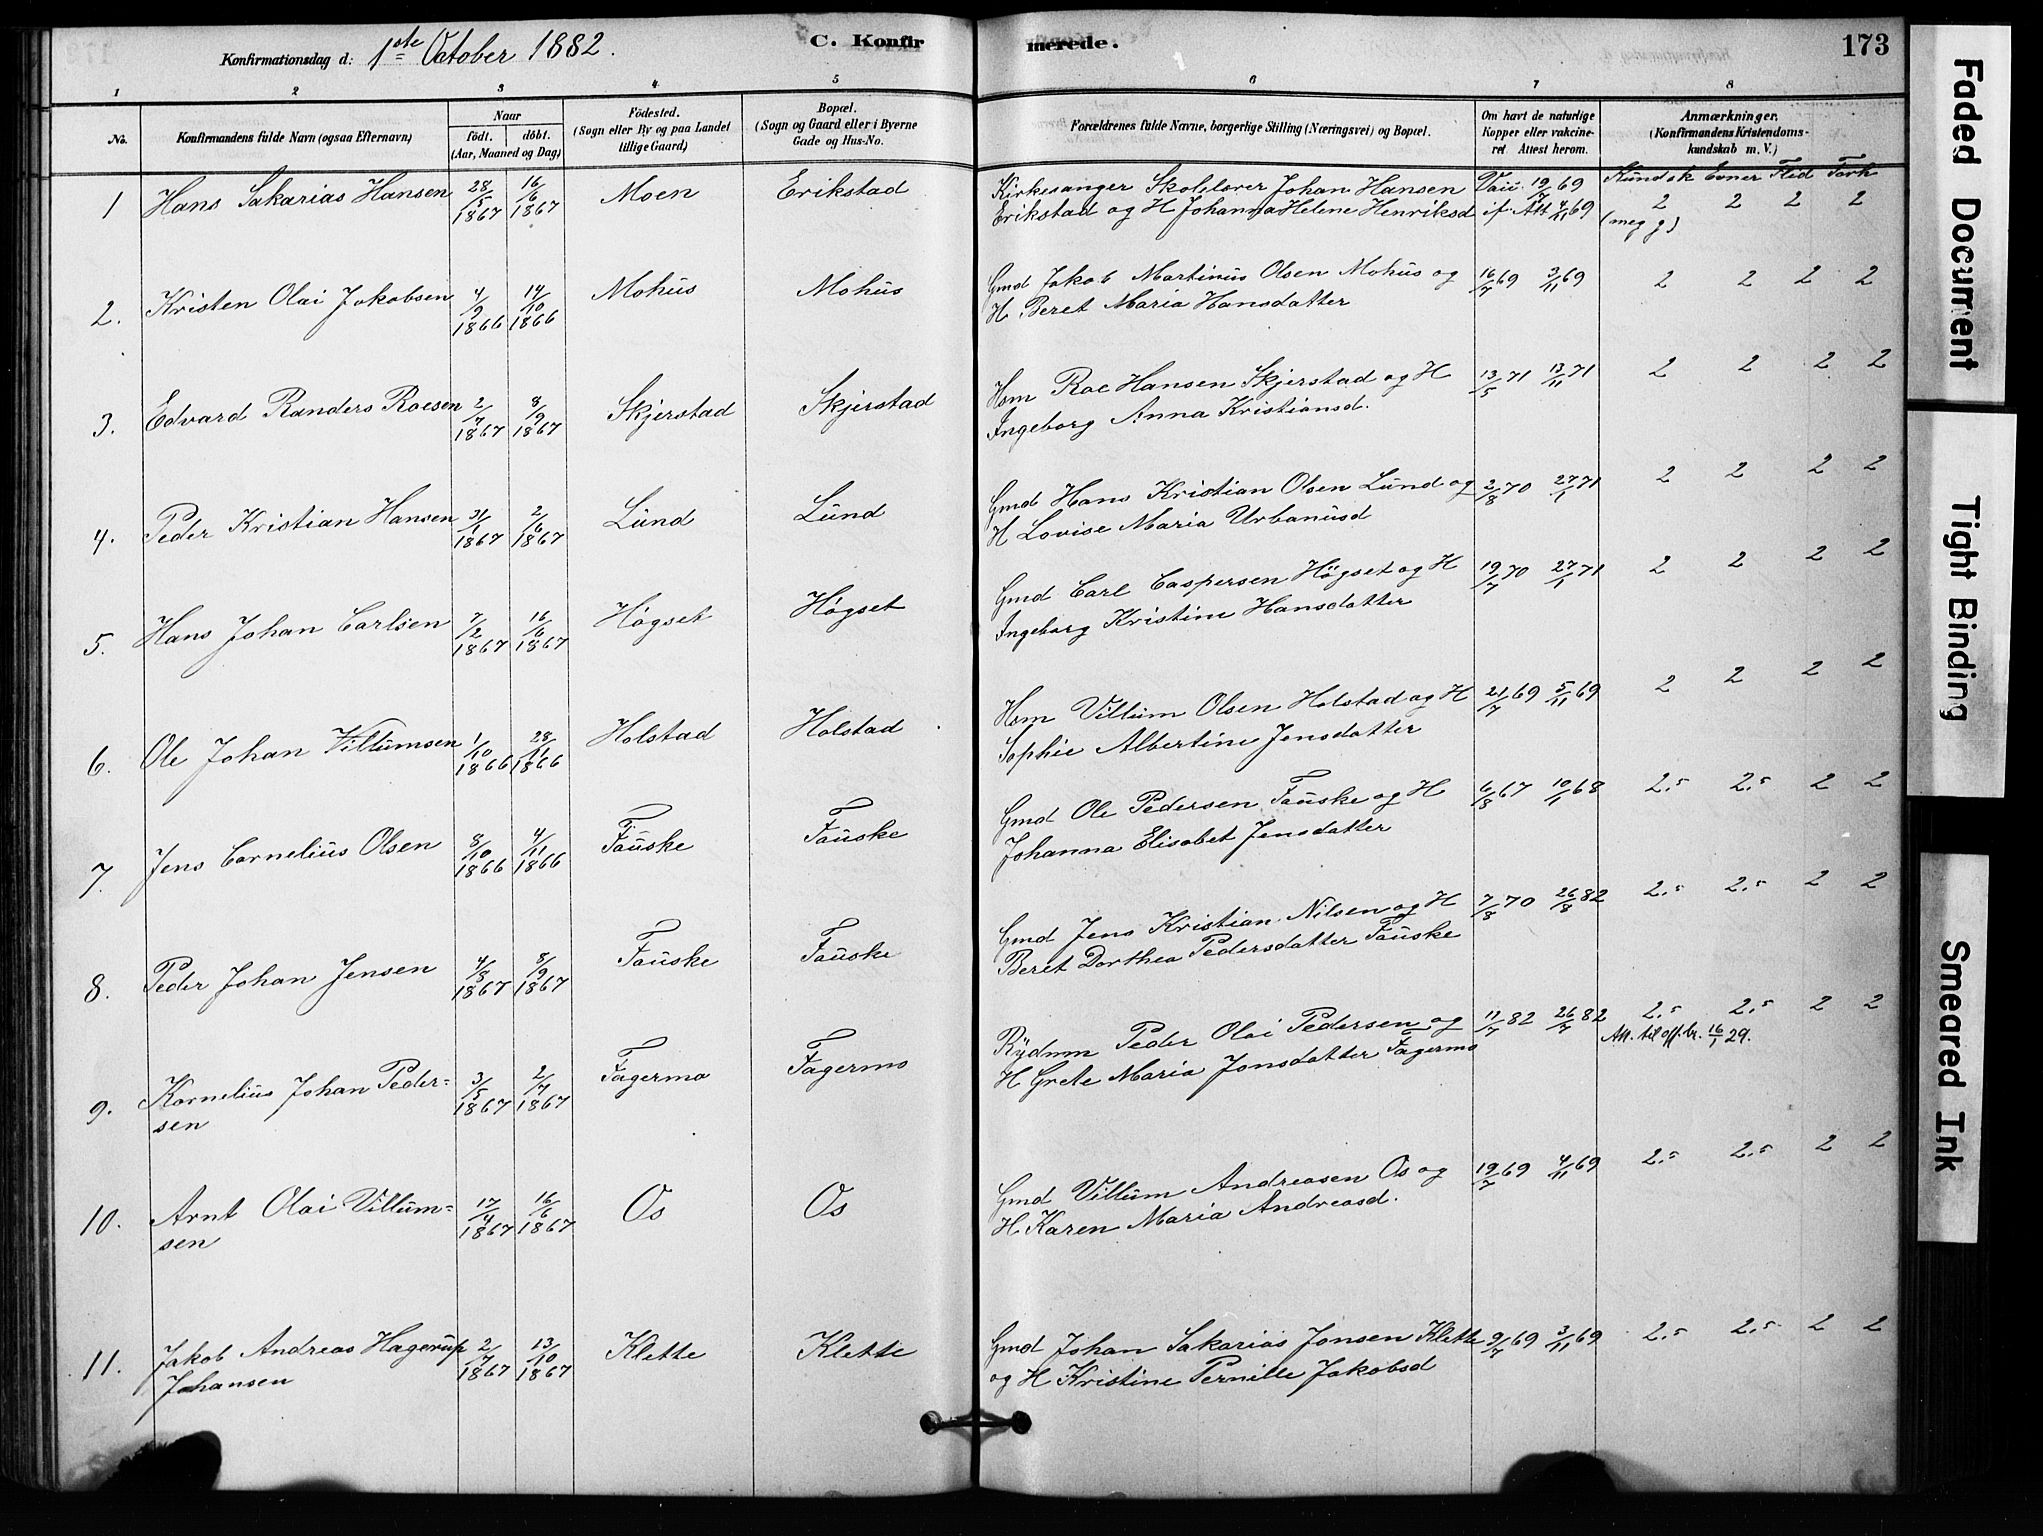 Konfirmationsdag d: 1ste October 1882. C. Konfirmerede. 173
1 2 3 4 5 6 7 8
No. Konfirmandens fulde Navn (ogsaa Efternavn) Naar født. døbt. (Aar, Maaned og Dag) Födested. (Sogn eller By og paa Landet tillige Gaard) Bopæl. (Sogn og Gaard eller i Byerne Gade og Hus-No. Forældrenes fulde Navne, borgerlige Stilling (Næringsvei) og Bopæl. Om havt de naturlige Kopper eller vakcineret. Attest herom. Anmærkninger. (Konfirmandens Kristendomskundskab m. V.)
Kundsk Evner Flid Forh
1 Hans Sakarias Hansen 28/5 1867 16/6 1867 Moen Erikstad Kirkesanger Skolelærer Johan Hansen Vacc. 19/7 69 2 2 2 2
Erikstad og H Johanna Helene Henriksd if. Att 4/11 69 (meg g)
2. Kristen Olai Jakobsen 4/9 1866 14/10 1866 Mohus Mohus Gmd Jakob Martinus Olsen Mohus og 16/7 69 3/11 69 2 2 2 2
H Beret Maria Hansdatter
3. Edvard Randers Roesen 2/7 1867 8/9 1867 Skjerstad Skjerstad Hsm Roe Hansen Skjerstad og H 13/5 71 13/11 71 2 2 2 2
Ingeborg Anna Kristiansd.
4. Peder Kristian Hansen 31/1 1867 2/6 1867 Lund Lund Gmd Hans Kristian Olsen Lund og 2/8 70 27/1 71 2 2 2 2
H Lovise Maria Urbanusd
5. Hans Johan Carlsen 7/2 1867 16/6 1867 Høgset Høgset Gmd Carl Caspersen Høgset og H 19/7 70 27/1 71 2 2 2 2
Ingeborg Kristine Hansdatter
6. Ole Johan Villumsen 1/10 1866 28/11 1866 Holstad Holstad Hsm Villum Olsen Holstad og H 21/7 69 5/11 69 2 2 2 2
Sophie Albertine Jensdatter
7. Jens Cornelius Olsen 8/10 1866 4/11 1866 Fauske Fauske Gmd Ole Pedersen Fauske og H 6/8 67 10/1 68 2.5 2.5 2 2
Johanna Elisabet Jensdatter
8. Peder Johan Jensen 4/8 1867 8/9 1867 Fauske Fauske Gmd Jens Kristian Nilsen og H 7/8 70 26/8 82 2.5 2.5 2 2
Beret Dorthea Pedersdatter Fauske
9. Kornelius Johan Peder= 3/5 1867 2/7 1867 Fagermo Fagermo Rydnm Peder Olai Pedersen og 11/7 82 26/7 82 2.5 2.5 2 2
sen H Grete Maria Jonsdatter Fagermo Att. til off. br. 16/1 29.
10. Arnt Olai Villum= 17/4 1867 16/6 1867 Os Os Gmd Villum Andreasen Os og 19/7 69 4/11 69 2.5 2.5 2 2
sen H Karen Maria Andreasd.
11. Jakob Andreas Hagerup 2/7 1867 13/10 1867 Klette Klette Gmd Johan Sakarias Jonsen Klette 9/7 69 3/11 69 2.5 2.5 2 2
Johansen og H Kristine Pernille Jakobsd
Faded Document
Tight Binding
Smeared Ink